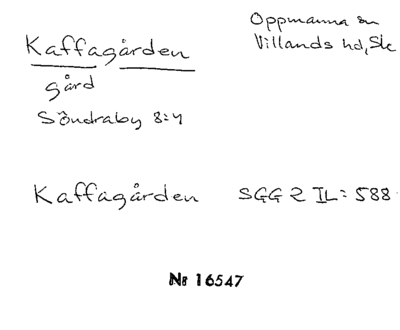 Kaffagården
Oppmanna sn
Villands hd, Sk
gård
Söndraby 8:4
Kaffagården SGG 2 IL: 588
Nr 16547